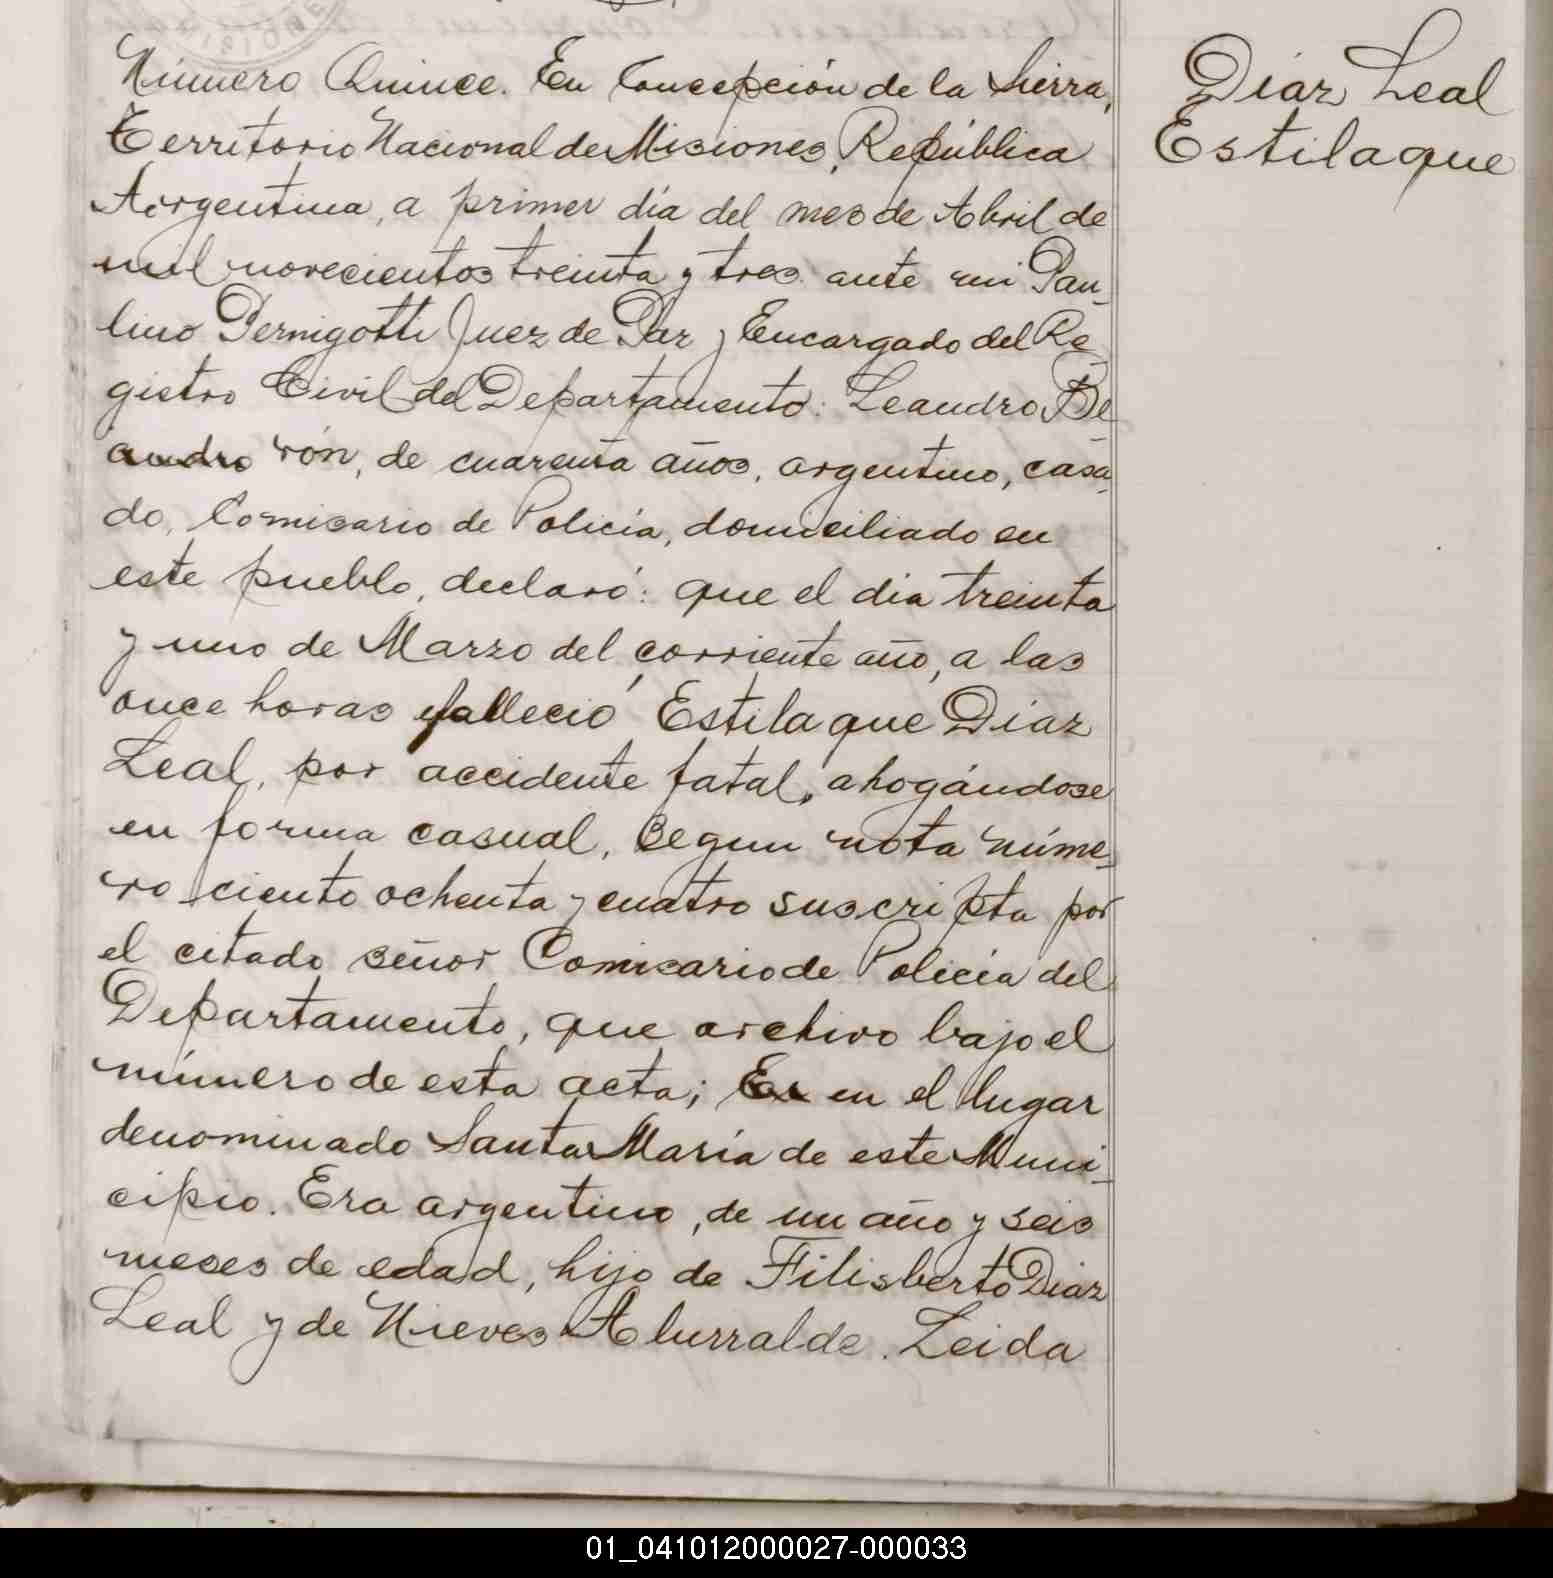 Número Quince. En Concepción de la Sierra,
Territorio Nacional de Misiones, República
Argentina, a primer día del mes de Abril de
mil novecientos treinta y tres. ante mi Pau-
lino Pernigotti Juez de Paz y Encargado del Re-
gistro Civil del Departamento: Leandro Be
andro rón, de cuarenta años, argentino, casa-
do, Comisario de Policía, domiciliado en
este pueblo, declaró: que el dia treinta
y uno de Marzo del corriente año, a las
once horas falleció Estilaque Díaz
Leal, por accidente fatal, ahogándose
en forma casual, segun nota núme-
ro ciento ochenta y cuatro suscripta por
el citado señor Comisario de Policía del
Departamento, que archivo bajo el
número de esta acta; en el lugar
denominado Santa María de este Muni-
cipio. Era argentino, de un año y seis
meses de edad, hijo de Filisberto Diaz
Leal y de Nieves Alurralde. Leida
Díaz Leal
Estilaque
01_041012000027-000033